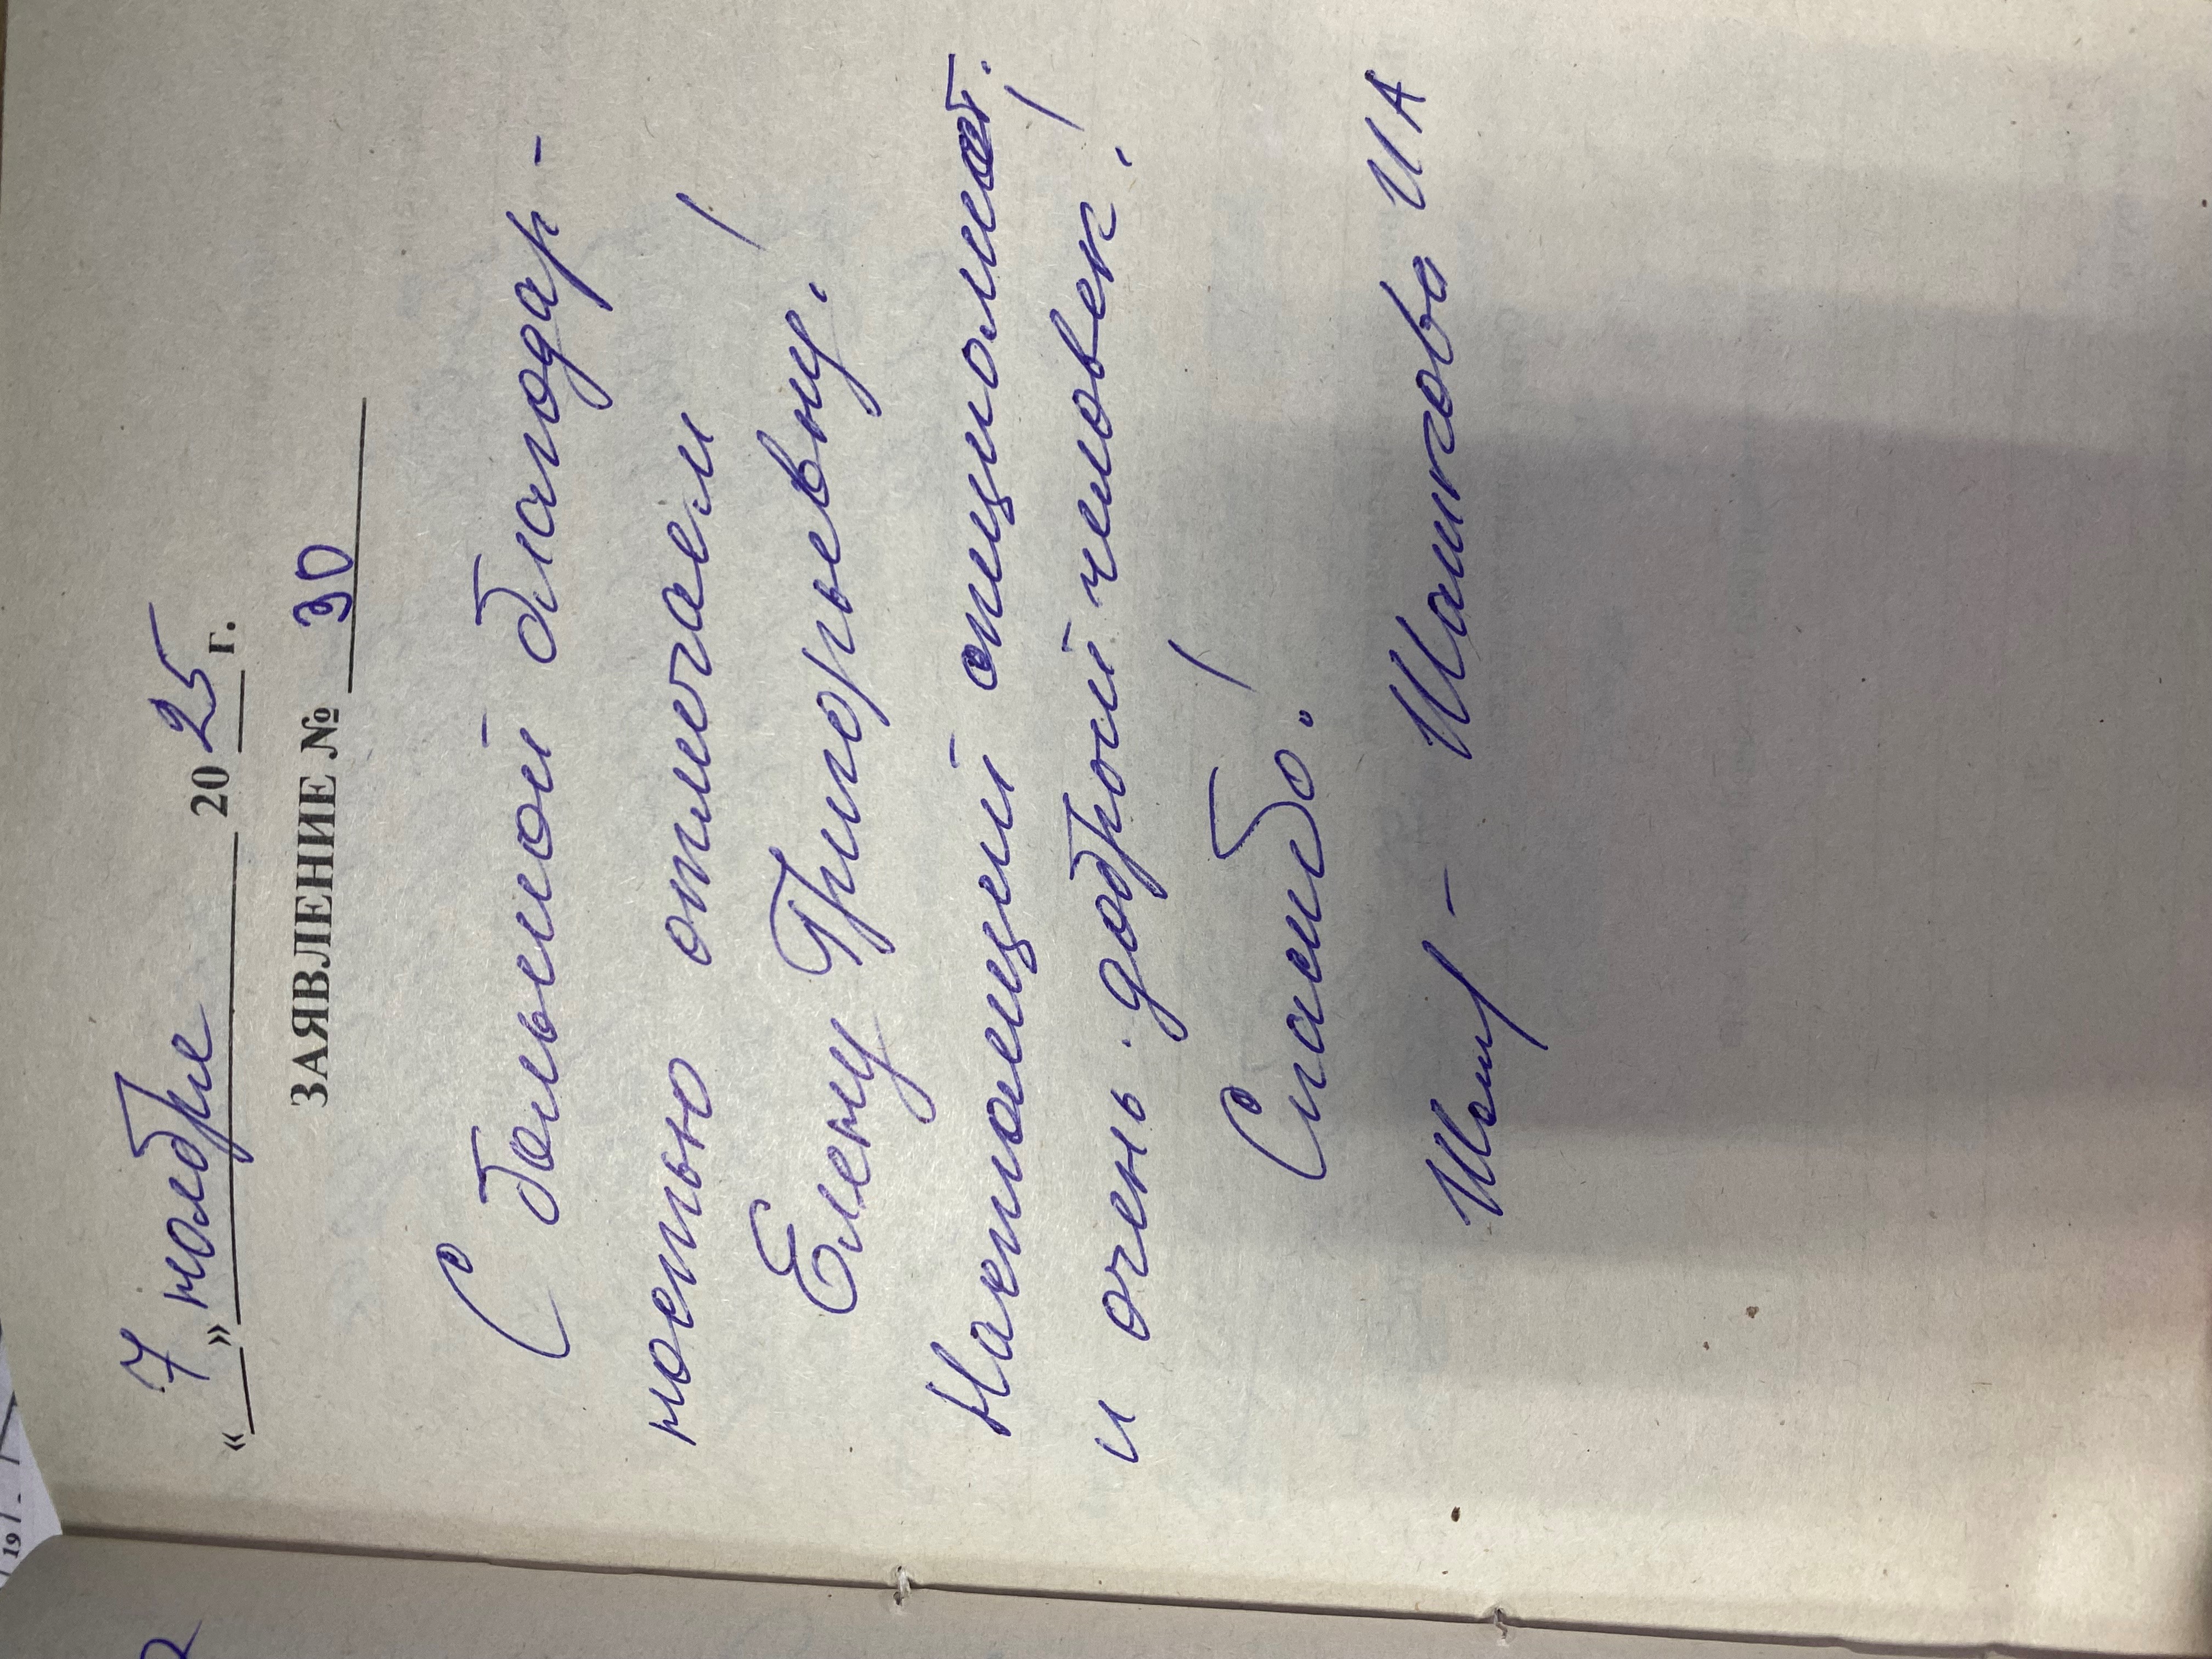 « 7 » ноября 2025 г.
ЗАЯВЛЕНИЕ № 30
С большой благодар-
ностью отмечаем
Елену Григорьевну!
Настоящий специалист.
и очень добрый человек!
Спасибо!
Шашкова И А
19